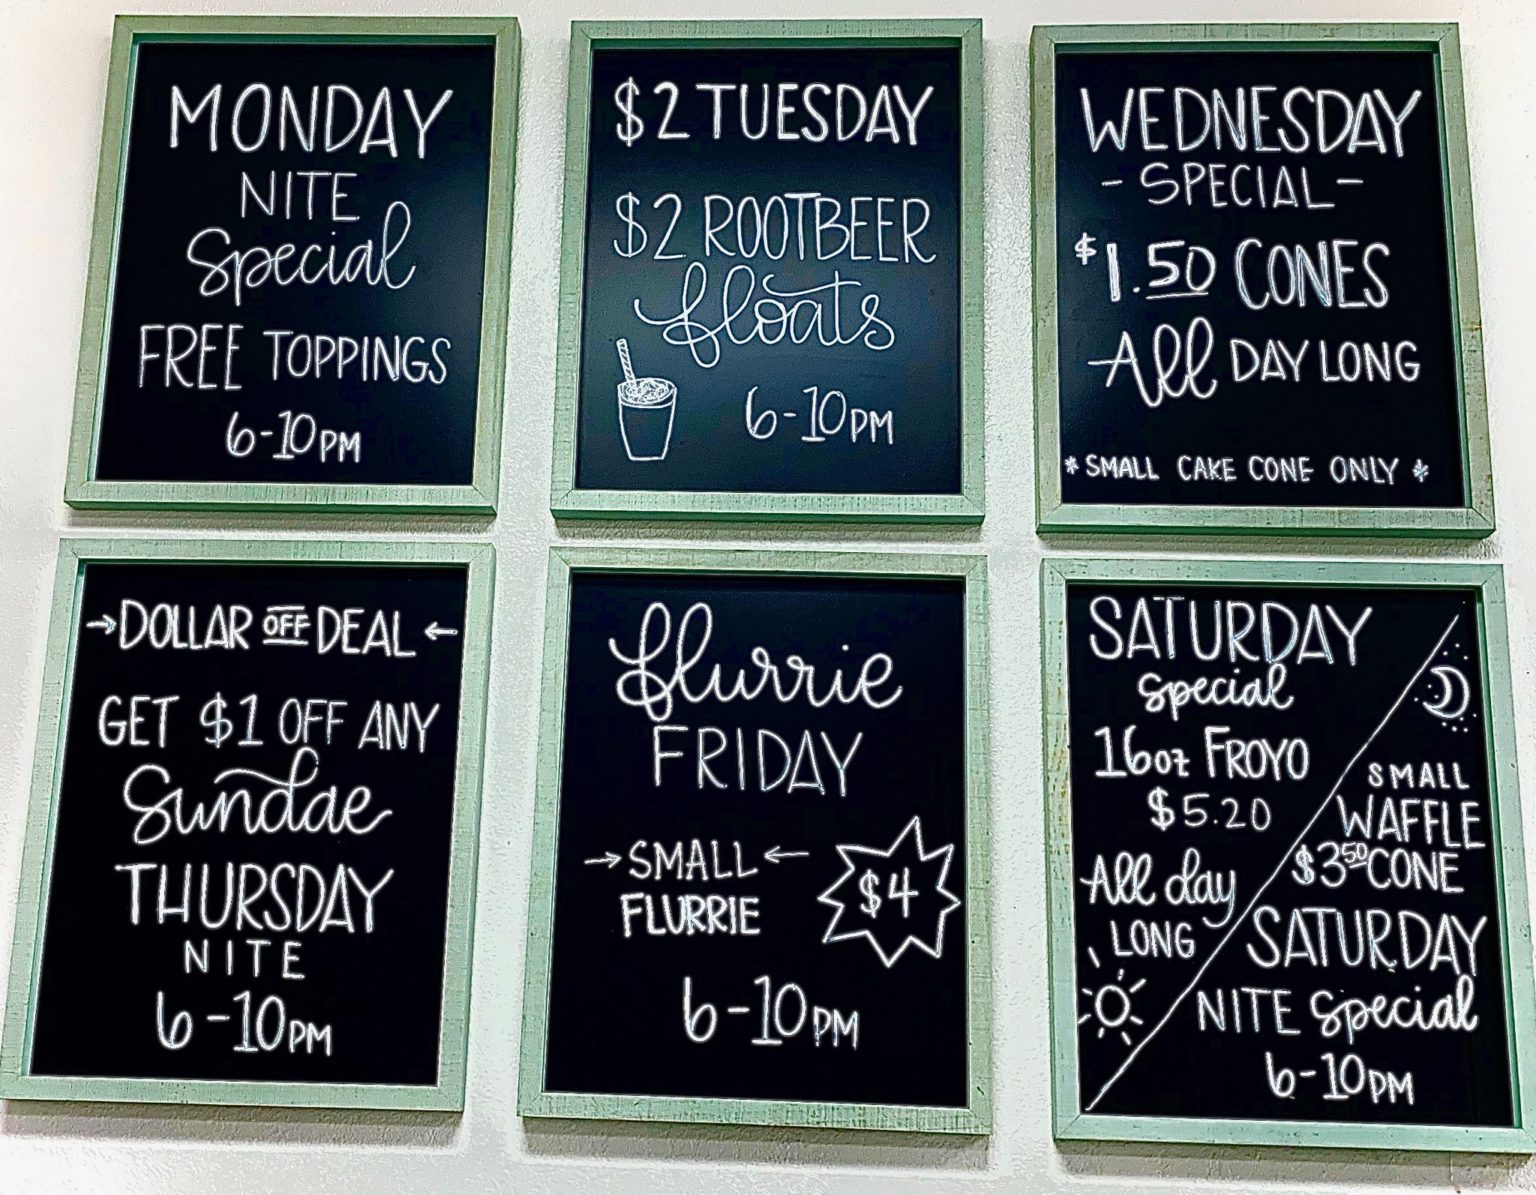 MONDAY
NITE
Special
FREE TOPPINGS
6-10PM
$2 TUESDAY
$2 ROOTBEER
floats
6-10PM
WEDNESDAY
- SPECIAL -
$1.50 CONES
All DAY LONG
* SMALL CAKE CONE ONLY *
→ DOLLAR OFF DEAL ←
GET $1 OFF ANY
Sundae
THURSDAY
NITE
6-10PM
flurrie
FRIDAY
→ SMALL ←
FLURRIE
$4
6-10PM
SATURDAY
Special
16oz FROYO
$5.20
All day
LONG
SMALL
WAFFLE
$3.50 CONE
SATURDAY
NITE Special
6-10PM